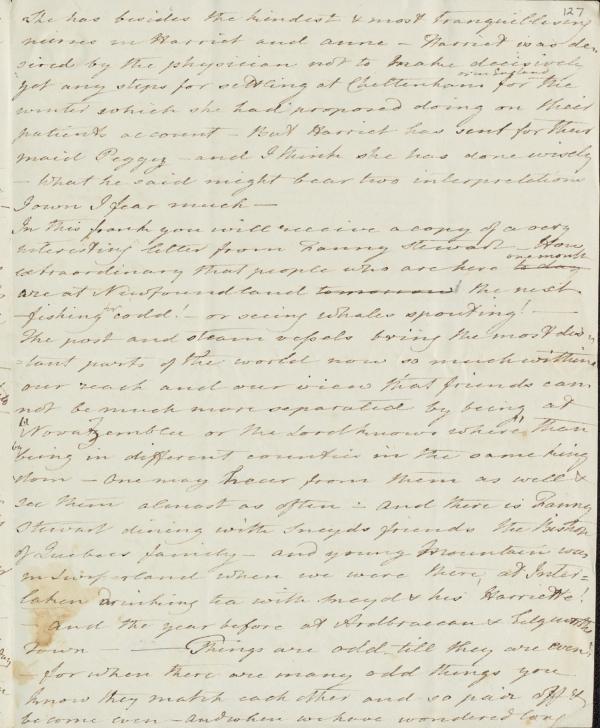 127
She has besides the kindest & most tranquillising
nurses in Harriet and Anne – Harriet is as de=
sired by the physician not to make decisively
yet any steps for settling at Cheltenham for the
or in England
winter which she had proposed doing on their
patients account – But Harriet has sent for their
maid Peggy – and I think she has done wisely
– What he said might bear two interpretations
I own I fear much –
In this frank you will receive a copy of a very
interesting letter from Fanny Stewart – How
extraordinary that people who are here to day
one month
are at Newfoundland tomorrow the next
– fishing for codd! – or seeing whales spouting! –
The post and steam vessels bring the most dis=
=tant parts of the world now so much within
our reach and our view that friends can
not be much more separated by being at
"Nova Zemblee or the Lord knows where" than
by being in different counties in the same king
dom – One may hear from them as well &
see them almost as often – and there is Fanny
Stewart dining with Sneyds friends the Bishop
of Quebecs family – and young Mountain was
in Switzerland when we were there, at Inter=
laken drinking tea with Sneyd & his Harriette!
– and the year before at Ardbraccan & Edgeworths
Town – Things are odd till they are even!
– for when there are many odd things you
know they match each other and so pair off &
become even – and when we have wondered long